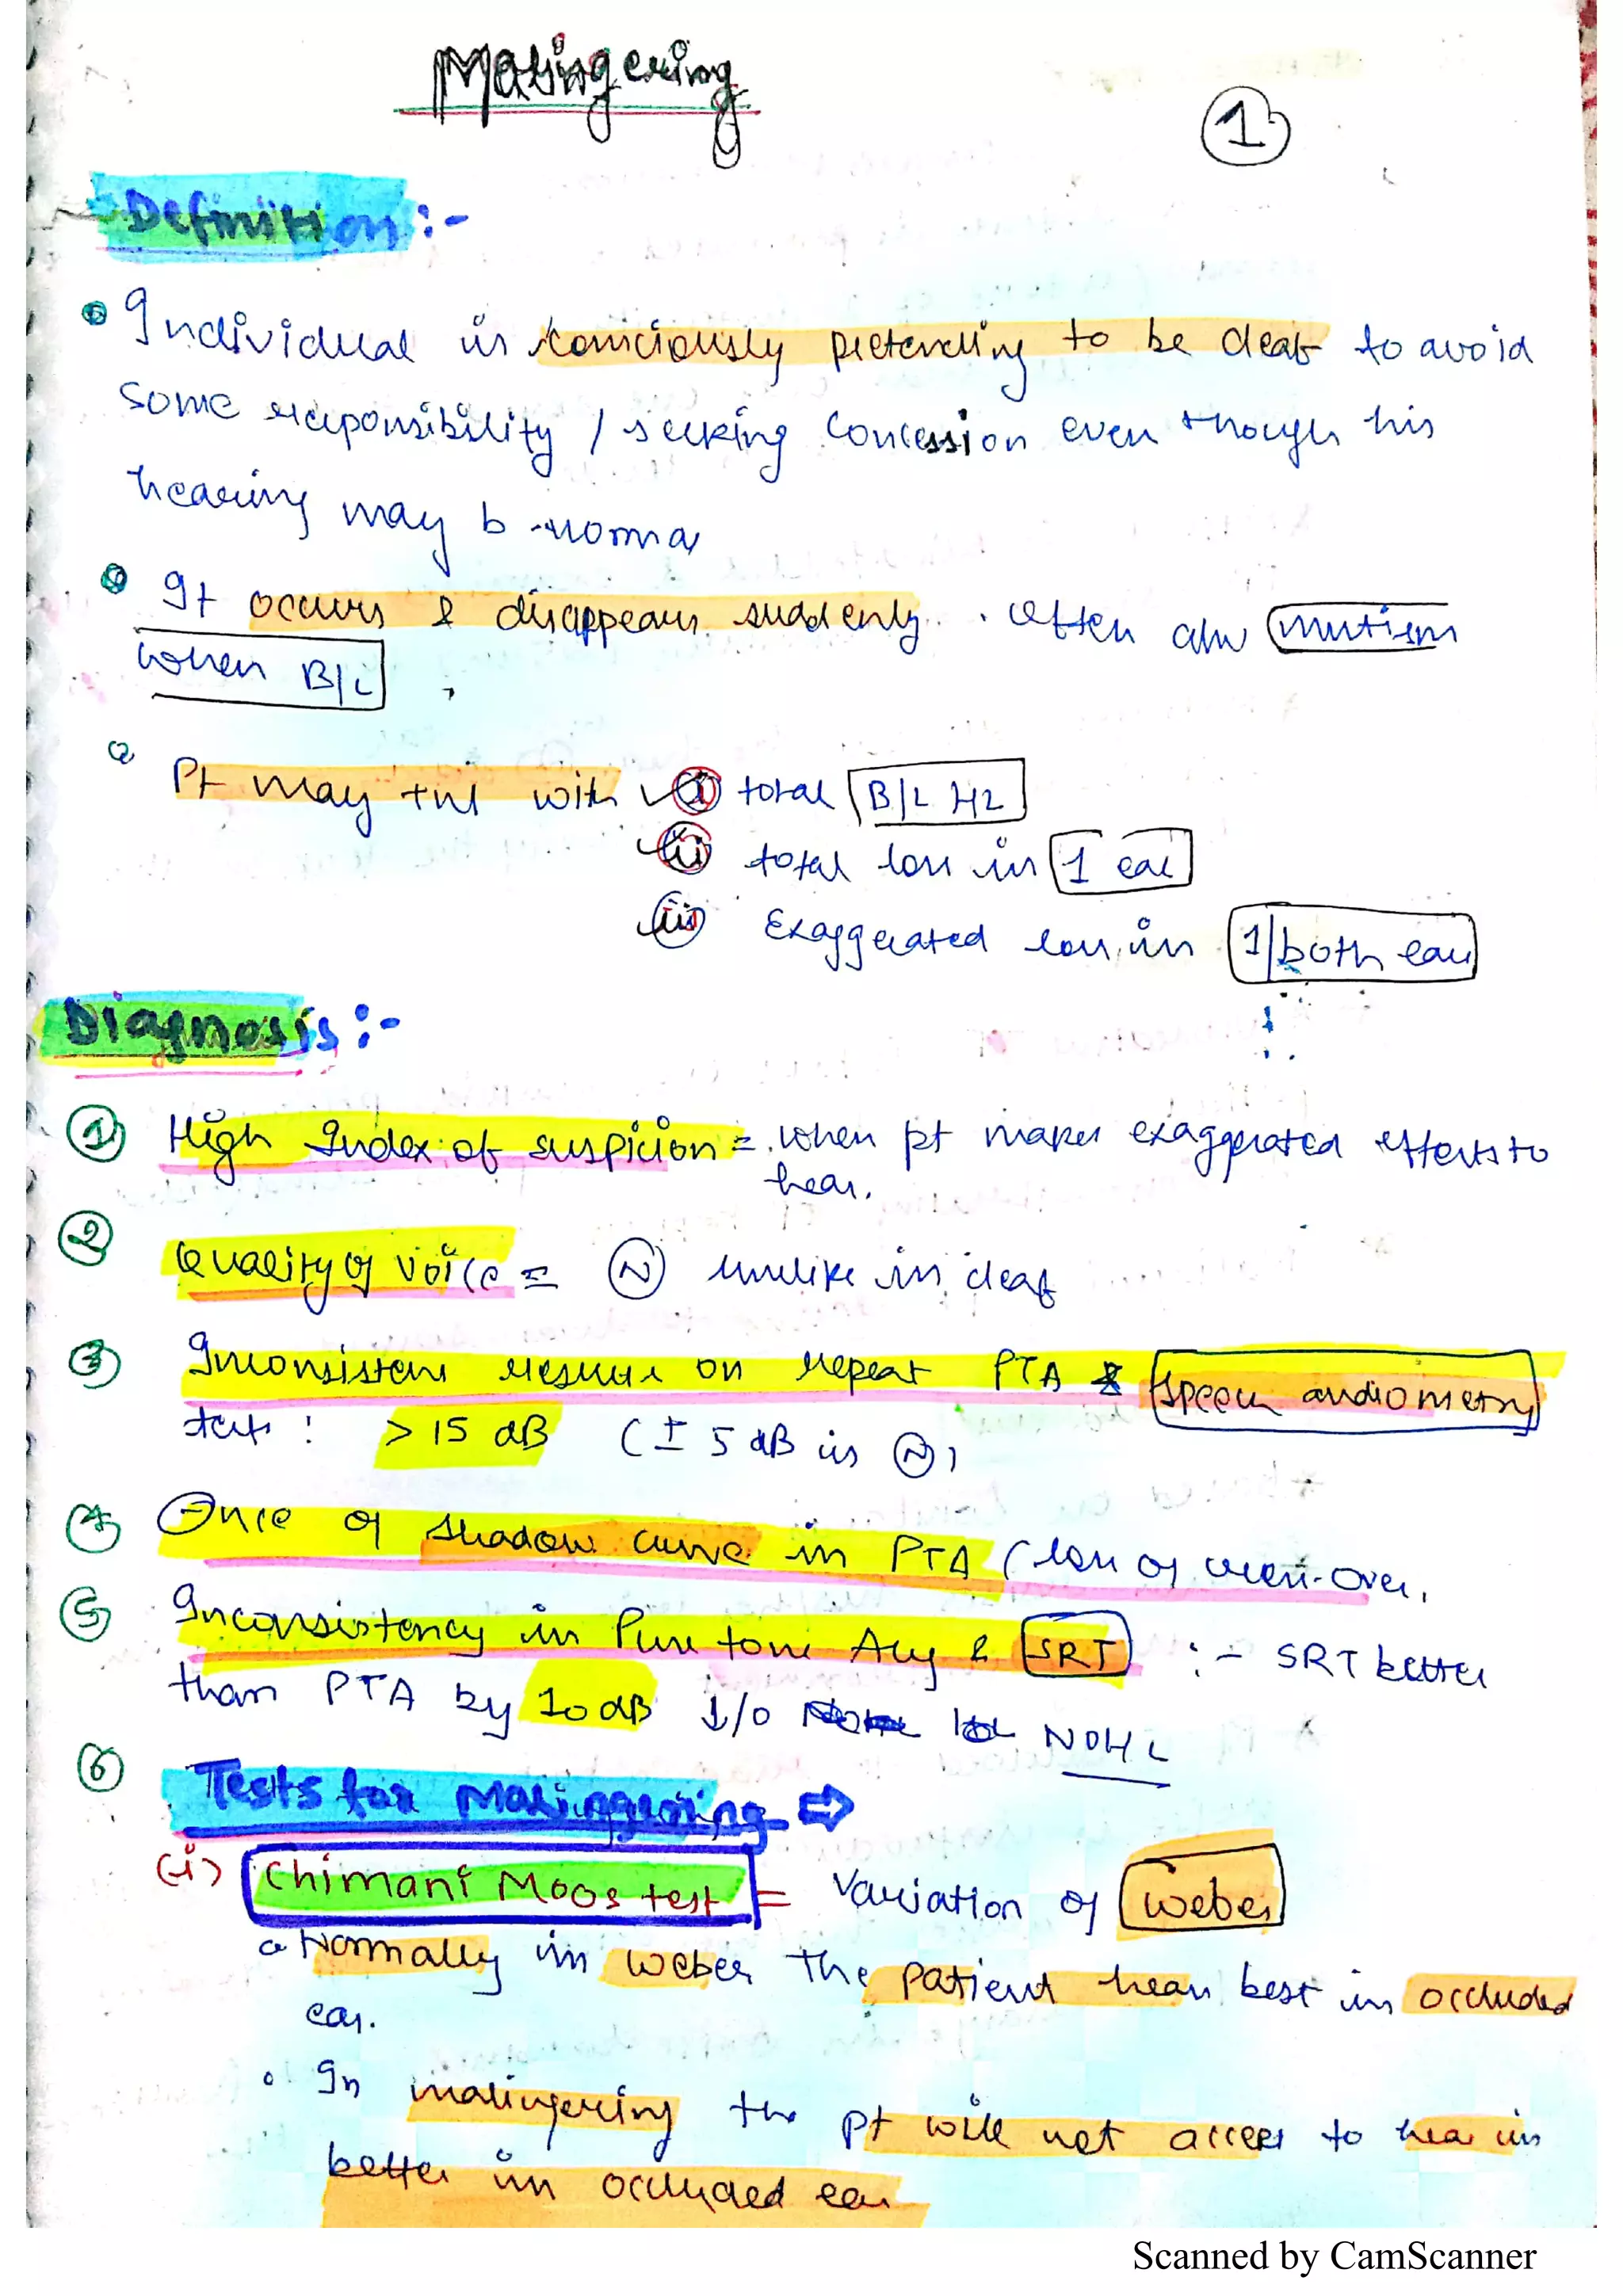 Malingering
1
Definition :-
Individual is consciously pretending to be deaf to avoid
some responsibility / seeking concession even though his
hearing may b norma
It occurs & disappears suddenly. often a/w mutism
when B/L.
Pt may with i total B/L HL
ii total loss in 1 ear
iii Exaggerated loss in 1/both ear
Diagnosis :-
1 High Index of suspicion = when pt makes exaggerated efforts to
hear.
2 Quality of voice = N unlike in deaf
3 Inconsistent results on repeat PTA & speech audiometry
tests : > 15 dB (± 5 dB is N)
4 of shadow curve in PTA (loss of cross-over.
5 Inconsistency in Pure tone Avg & SRT :- SRT better
than PTA by 10 dB NOHL
6 Tests for Malingering ⇨
(i) Chimani Moos test = Variation of Weber
Normally in weber the patient hears best in occluded
ear.
In malingering the pt will not accept to hear in
better in occluded ear
Scanned by CamScanner